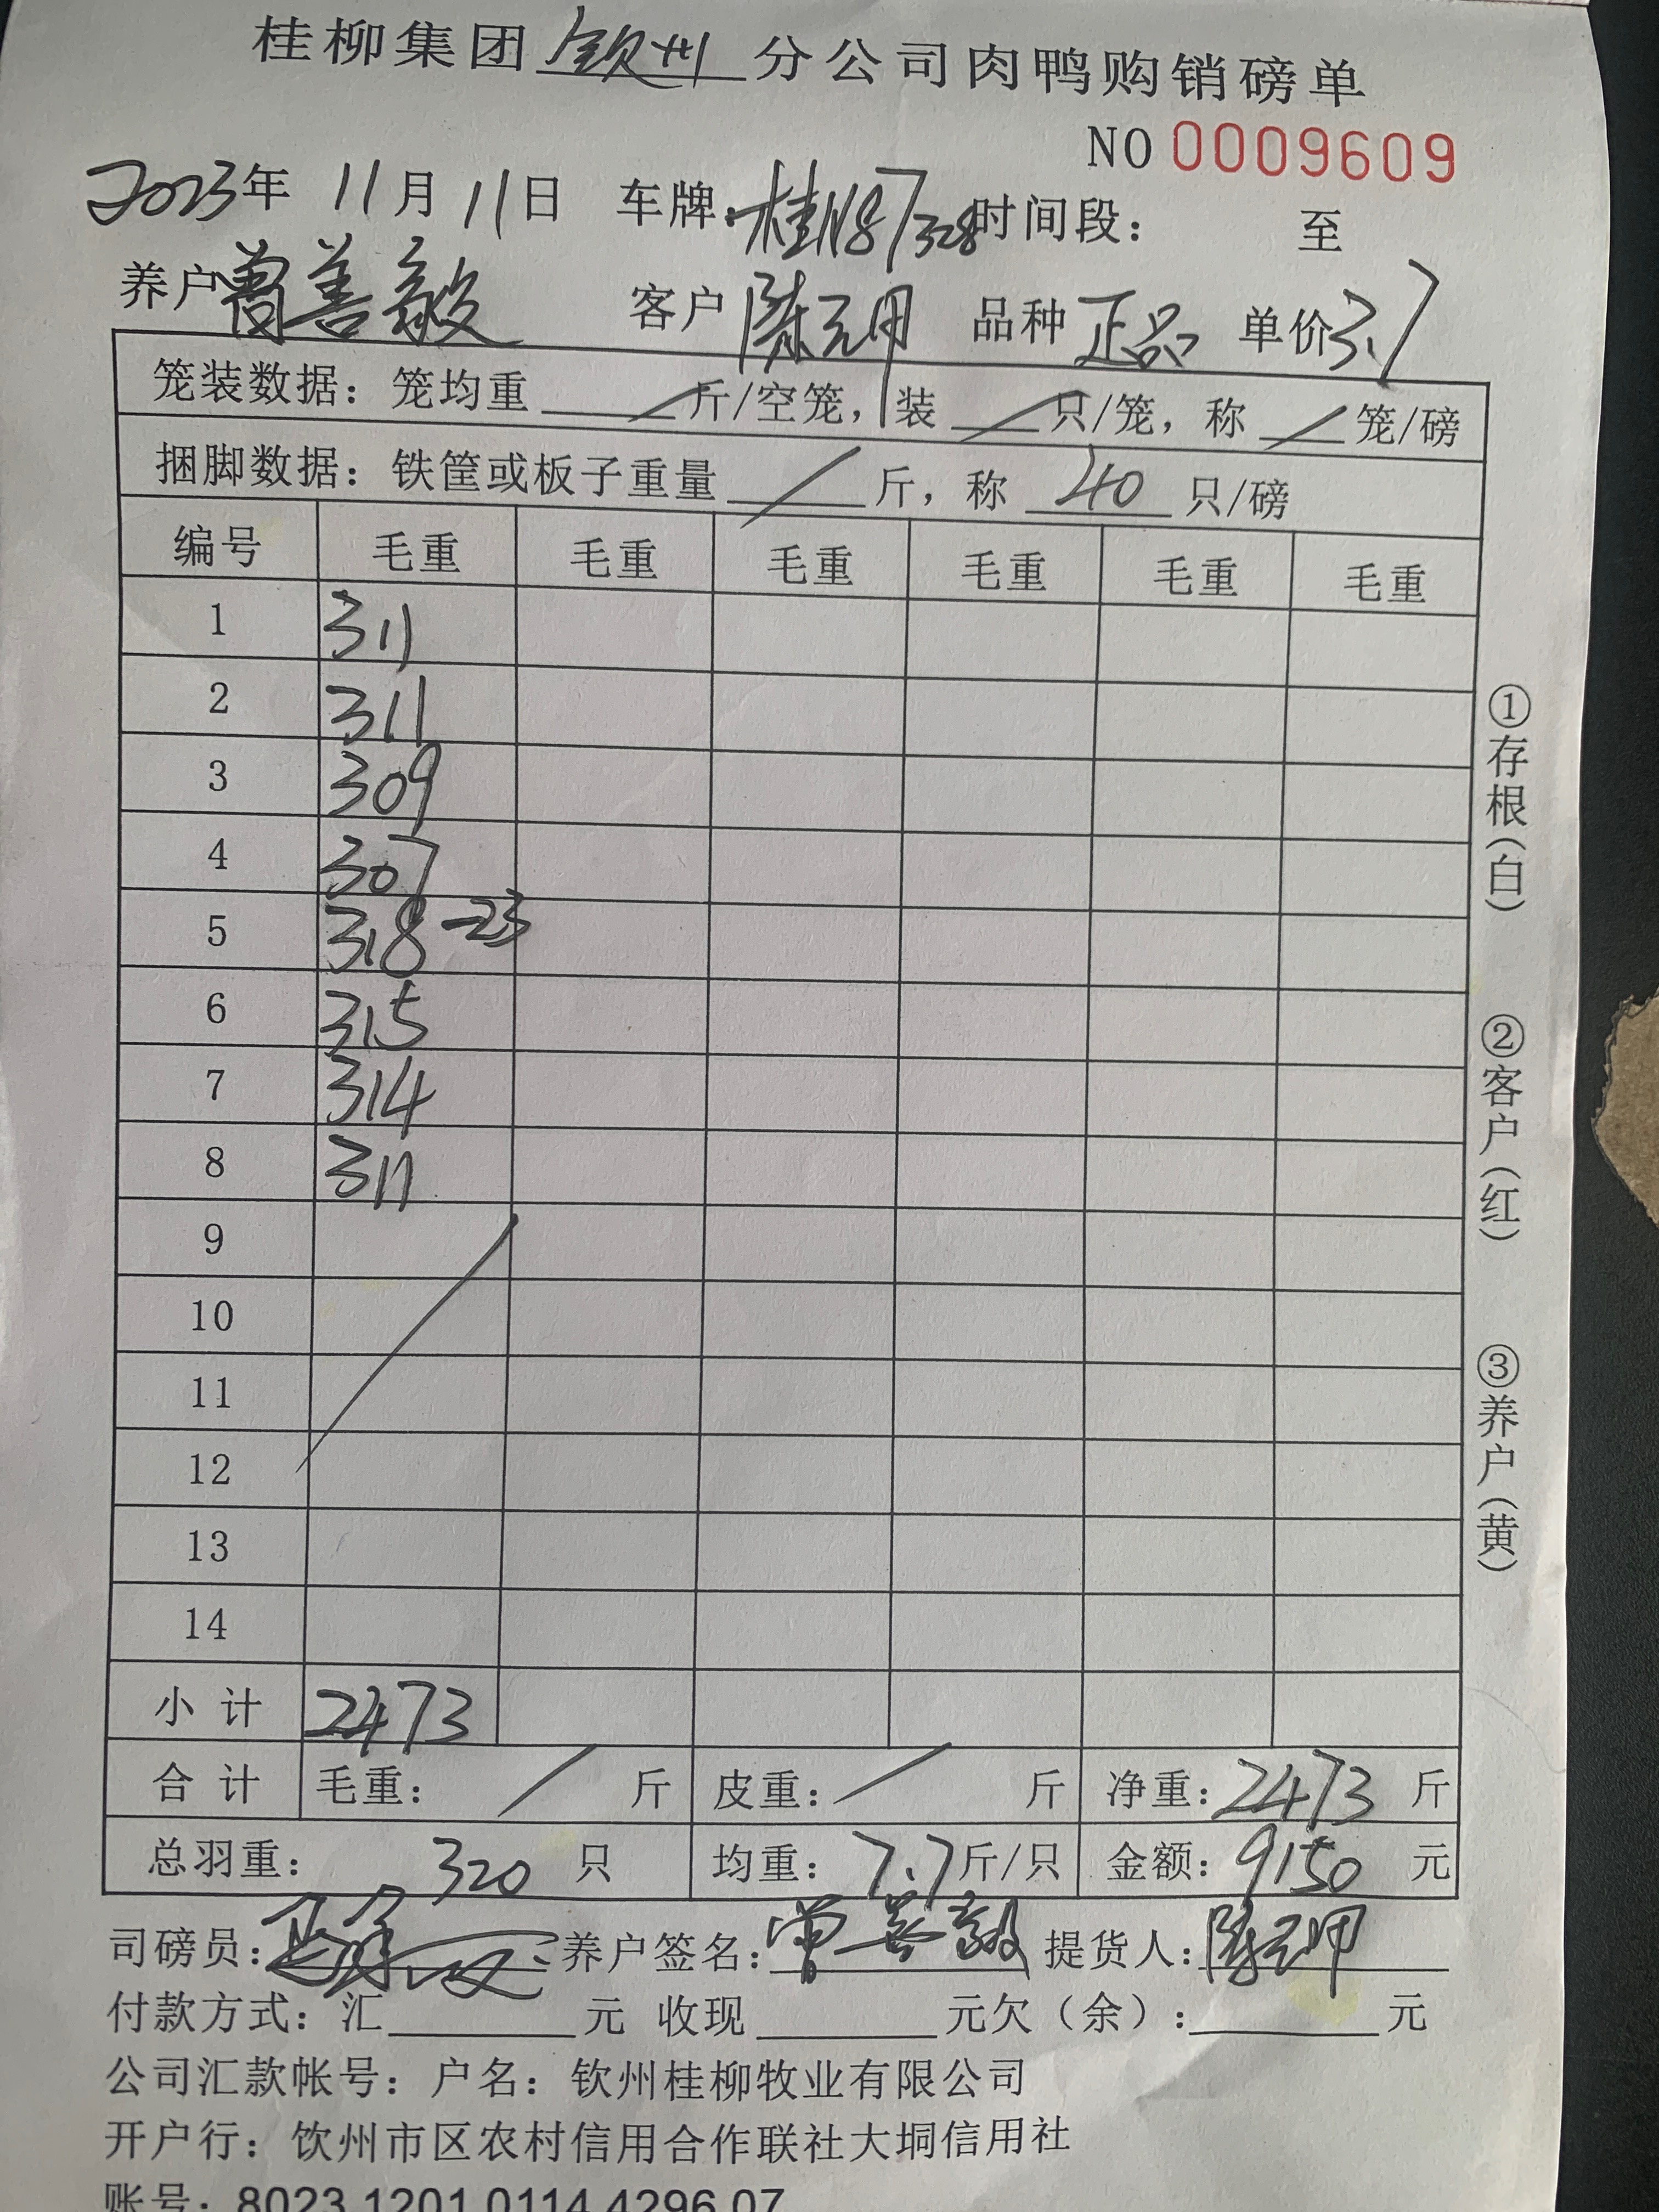 桂柳集团 钦州 分公司肉鸭购销磅单
NO 0009609
2023年 11月 11日 车牌: 时间段: 至
养户 曾善毅 客户 品种 正品 单价 3.7
笼装数据: 笼均重 / 斤/空笼, 装 / 只/笼, 称 / 笼/磅
捆脚数据: 铁筐或板子重量 / 斤, 称 40 只/磅
编号 毛重 毛重 毛重 毛重 毛重 毛重
1 311
2 311
3 309
4 307
5 318 -23
6 315
7 314
8 311
9
10
11
12
13
14
小计 2473
合计 毛重: / 斤 皮重: / 斤 净重: 2473 斤
总羽重: 320 只 均重: 7.7 斤/只 金额: 9150 元
司磅员: 养户签名: 曾善毅 提货人:
付款方式: 汇 元 收现 元欠(余): 元
公司汇款帐号: 户名: 钦州桂柳牧业有限公司
开户行: 钦州市区农村信用合作联社大垌信用社
账号: 8023 1201 0114 4296 07
①存根(白)
②客户(红)
③养户(黄)